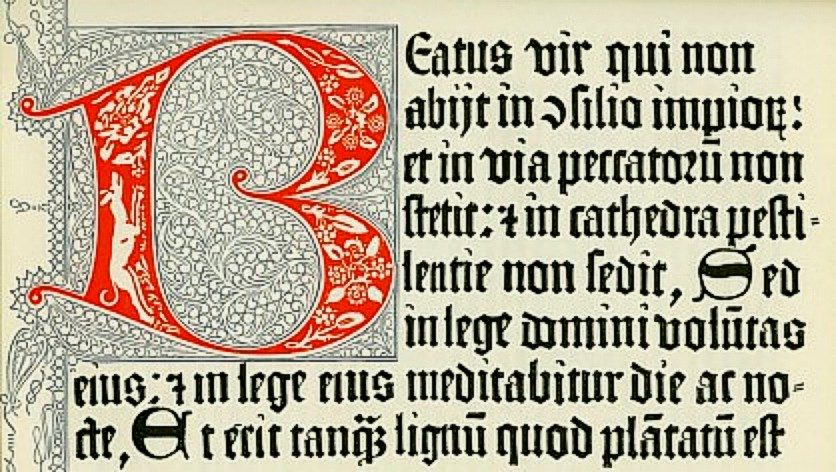 Beatus vir qui non
abijt in ↄsilio impioꝝ:
et in via peccatoꝝū non
stetit: ⁊ in cathedra pesti-
lentie non sedit, Sed
in lege domini volūtas
eius: ⁊ in lege eius meditabitur die ac no-
cte, Et erit tanqꝫ lignū quod plātatū est